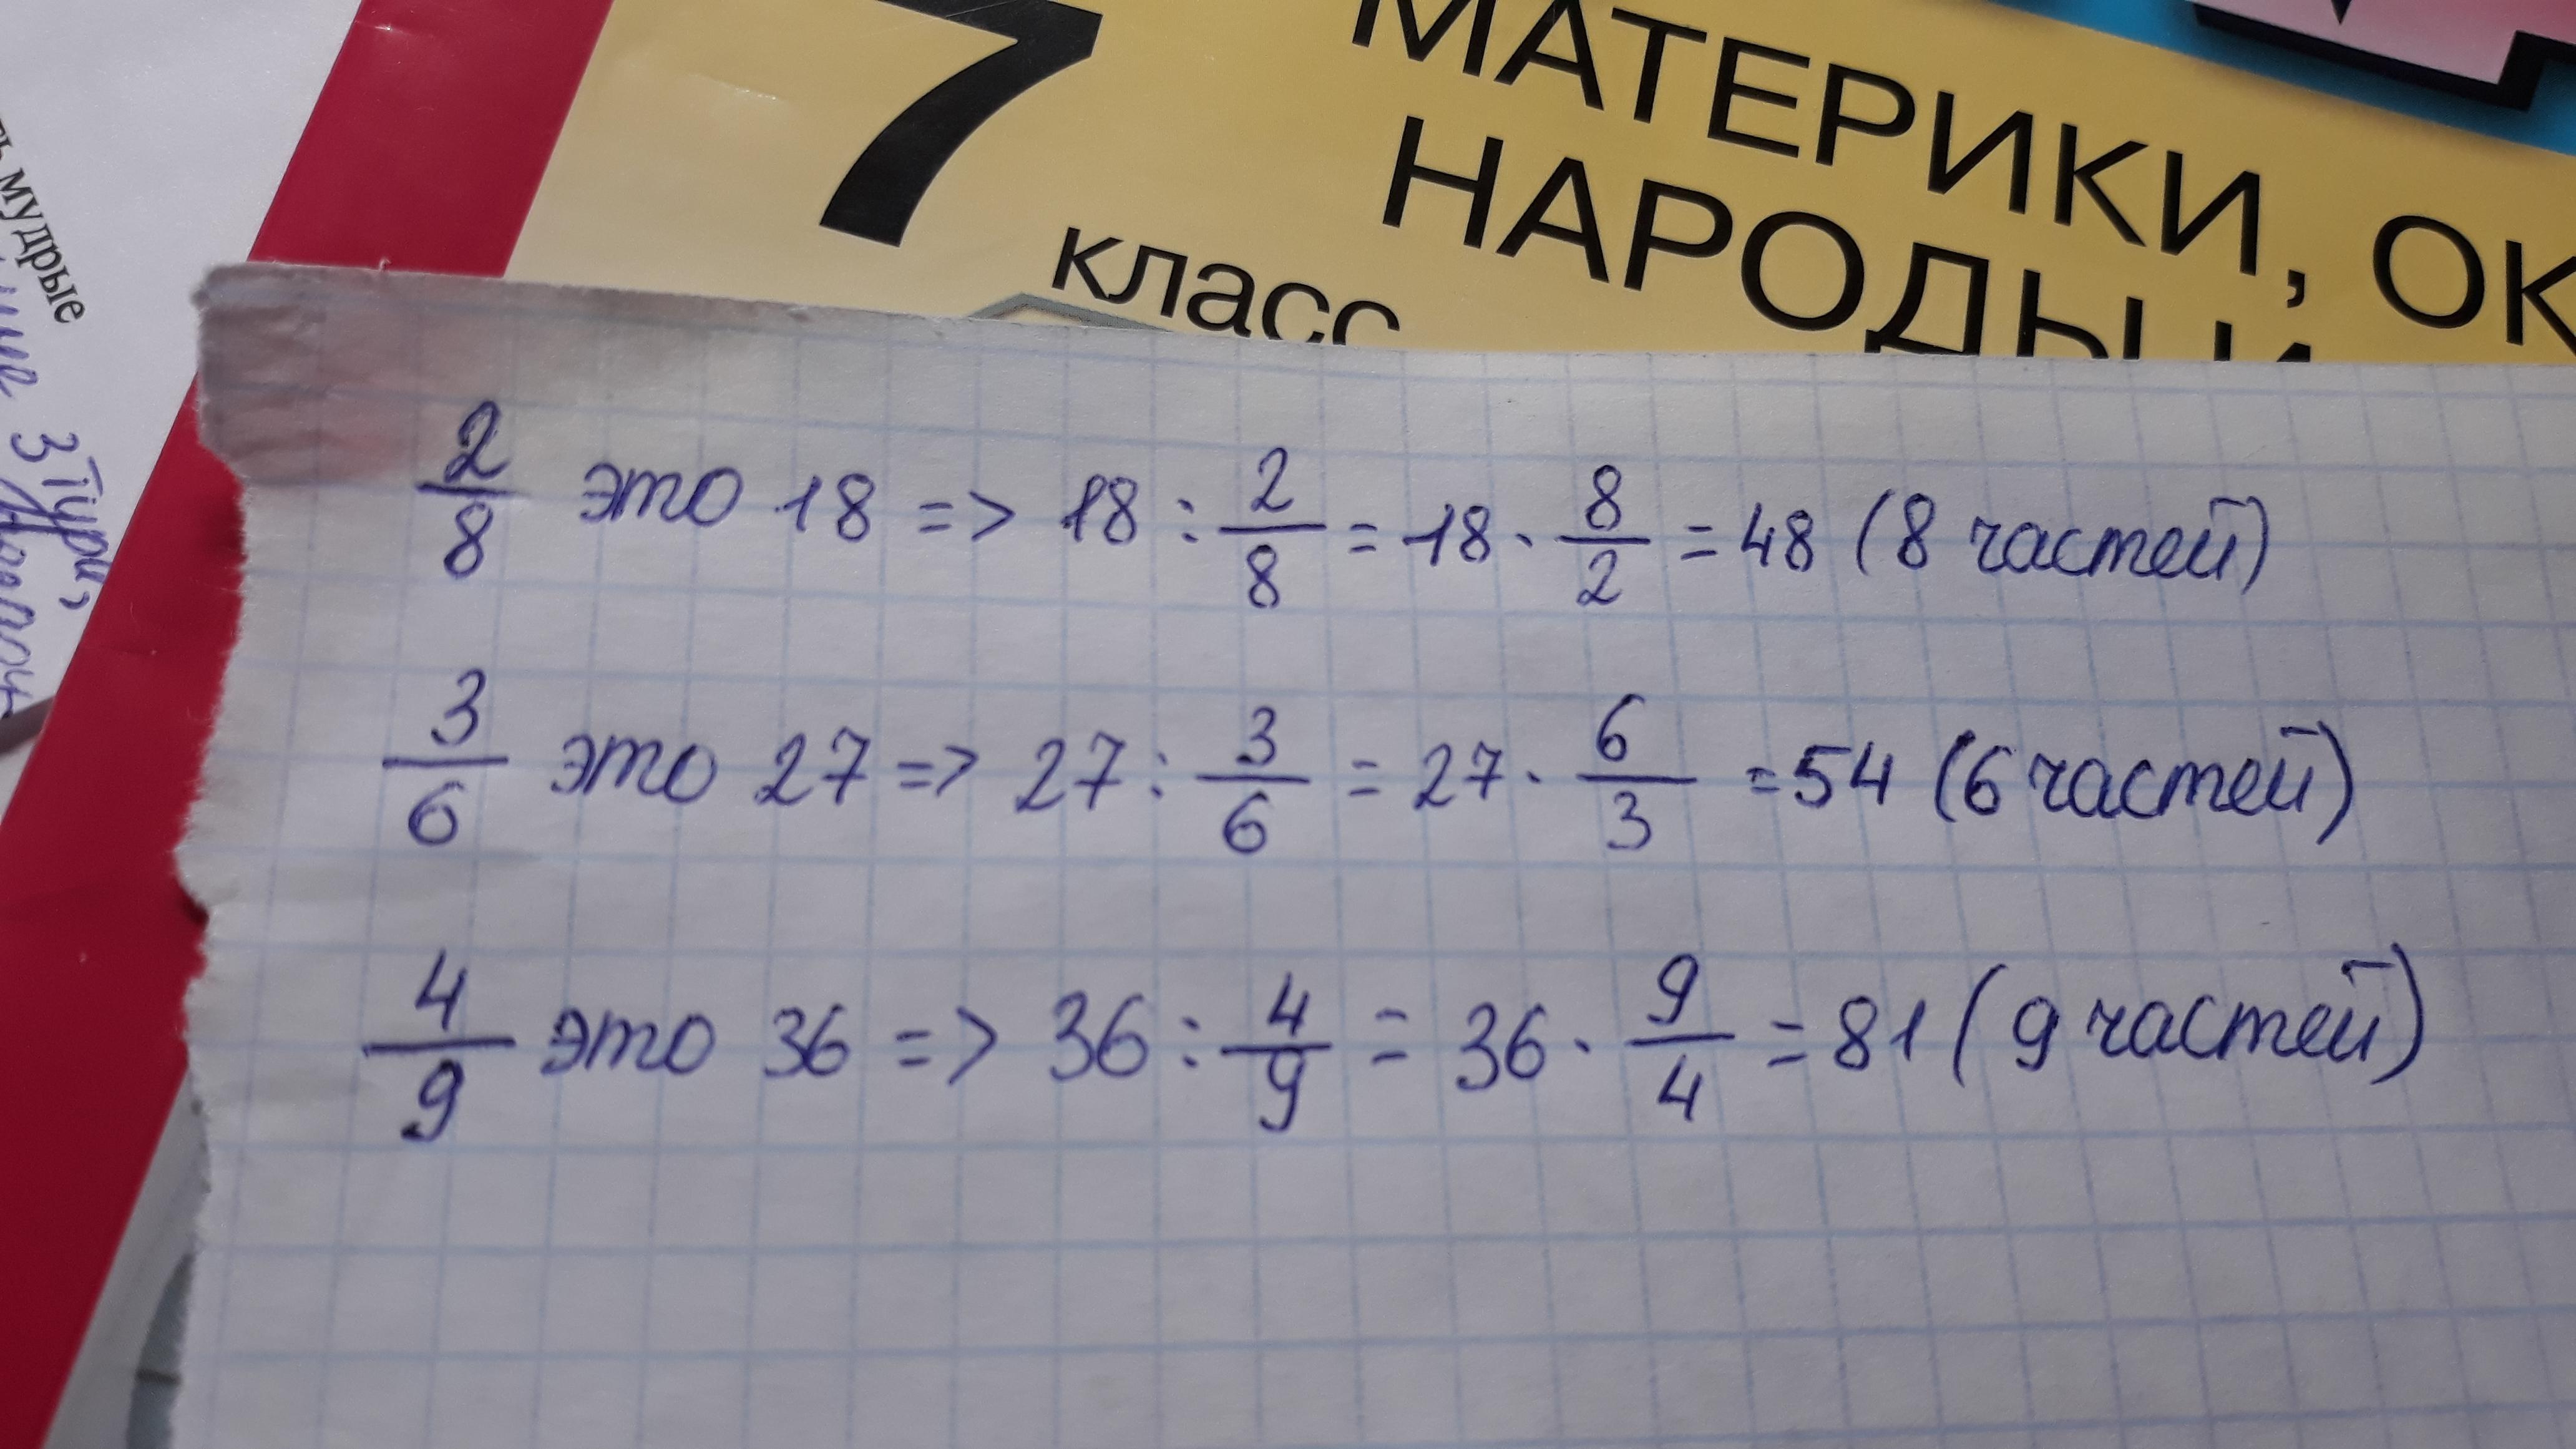 7
класс
МАТЕРИКИ,
НАРОДЫ И
мудрые
2/8 это 18 => 18 : 2/8 = 18 · 8/2 = 48 (8 частей)
3/6 это 27 => 27 : 3/6 = 27 · 6/3 = 54 (6 частей)
4/9 это 36 => 36 : 4/9 = 36 · 9/4 = 81 (9 частей)